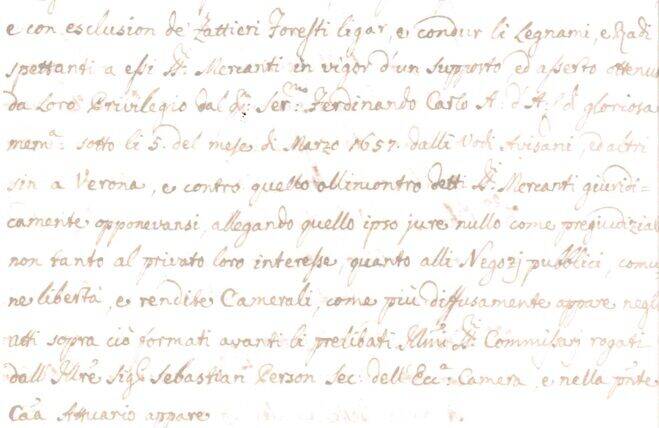 e con esclusion de Zattieri Foresti ligar, e condur li Legnami, e Radi
spettanti a essi SS:ri Mercanti in vigor d'un supposto ed asserto ottenut
da Loro Privilegio dal q: Ser:mo Ferdinando Carlo A: d'A: di gloriosa
mem:a: sotto li 5. del mese di Marzo 1657. dalli Vodi Avisani, ed altri
sin a Verona, e contro quello all'incontro dett: SS:ri Mercanti giuridi=
camente opponevansi, allegando quello ipso jure nullo come pregiudizial
non tanto al privato loro interesse, quanto alli Negozj pubblici, comu
ne libertà, e rendite Camerali, come più diffusamente appare negl
atti sopra ciò formati avanti li prelibati Illmi SS:ri Commissarj rogati
dall'Illre Sigr Sebastian Person Sec: dell'Ecc:a Camera, e nella pnte
Ca:a Attuario appare